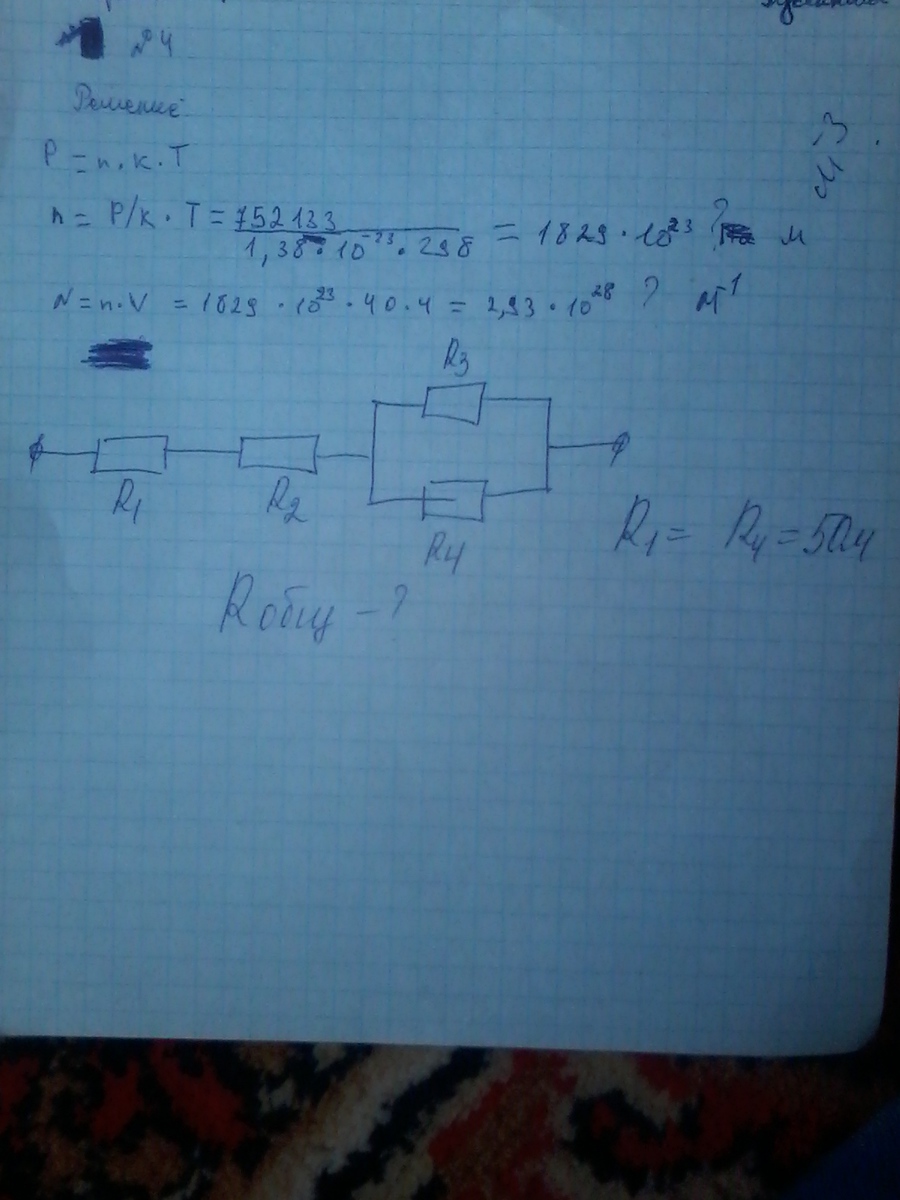 №4
Решение
P = n.к.T
n = P/к · T = 752133 / 1,38·10⁻²³·298 = 1829·10²³ ? м
N = n·V = 1829·10²³·40·4 = 2,93·10²⁸ ? м⁻¹
м⁻³
R3
R1 R2
R4
R1 = R4 = 5Ом
Rобщ - ?